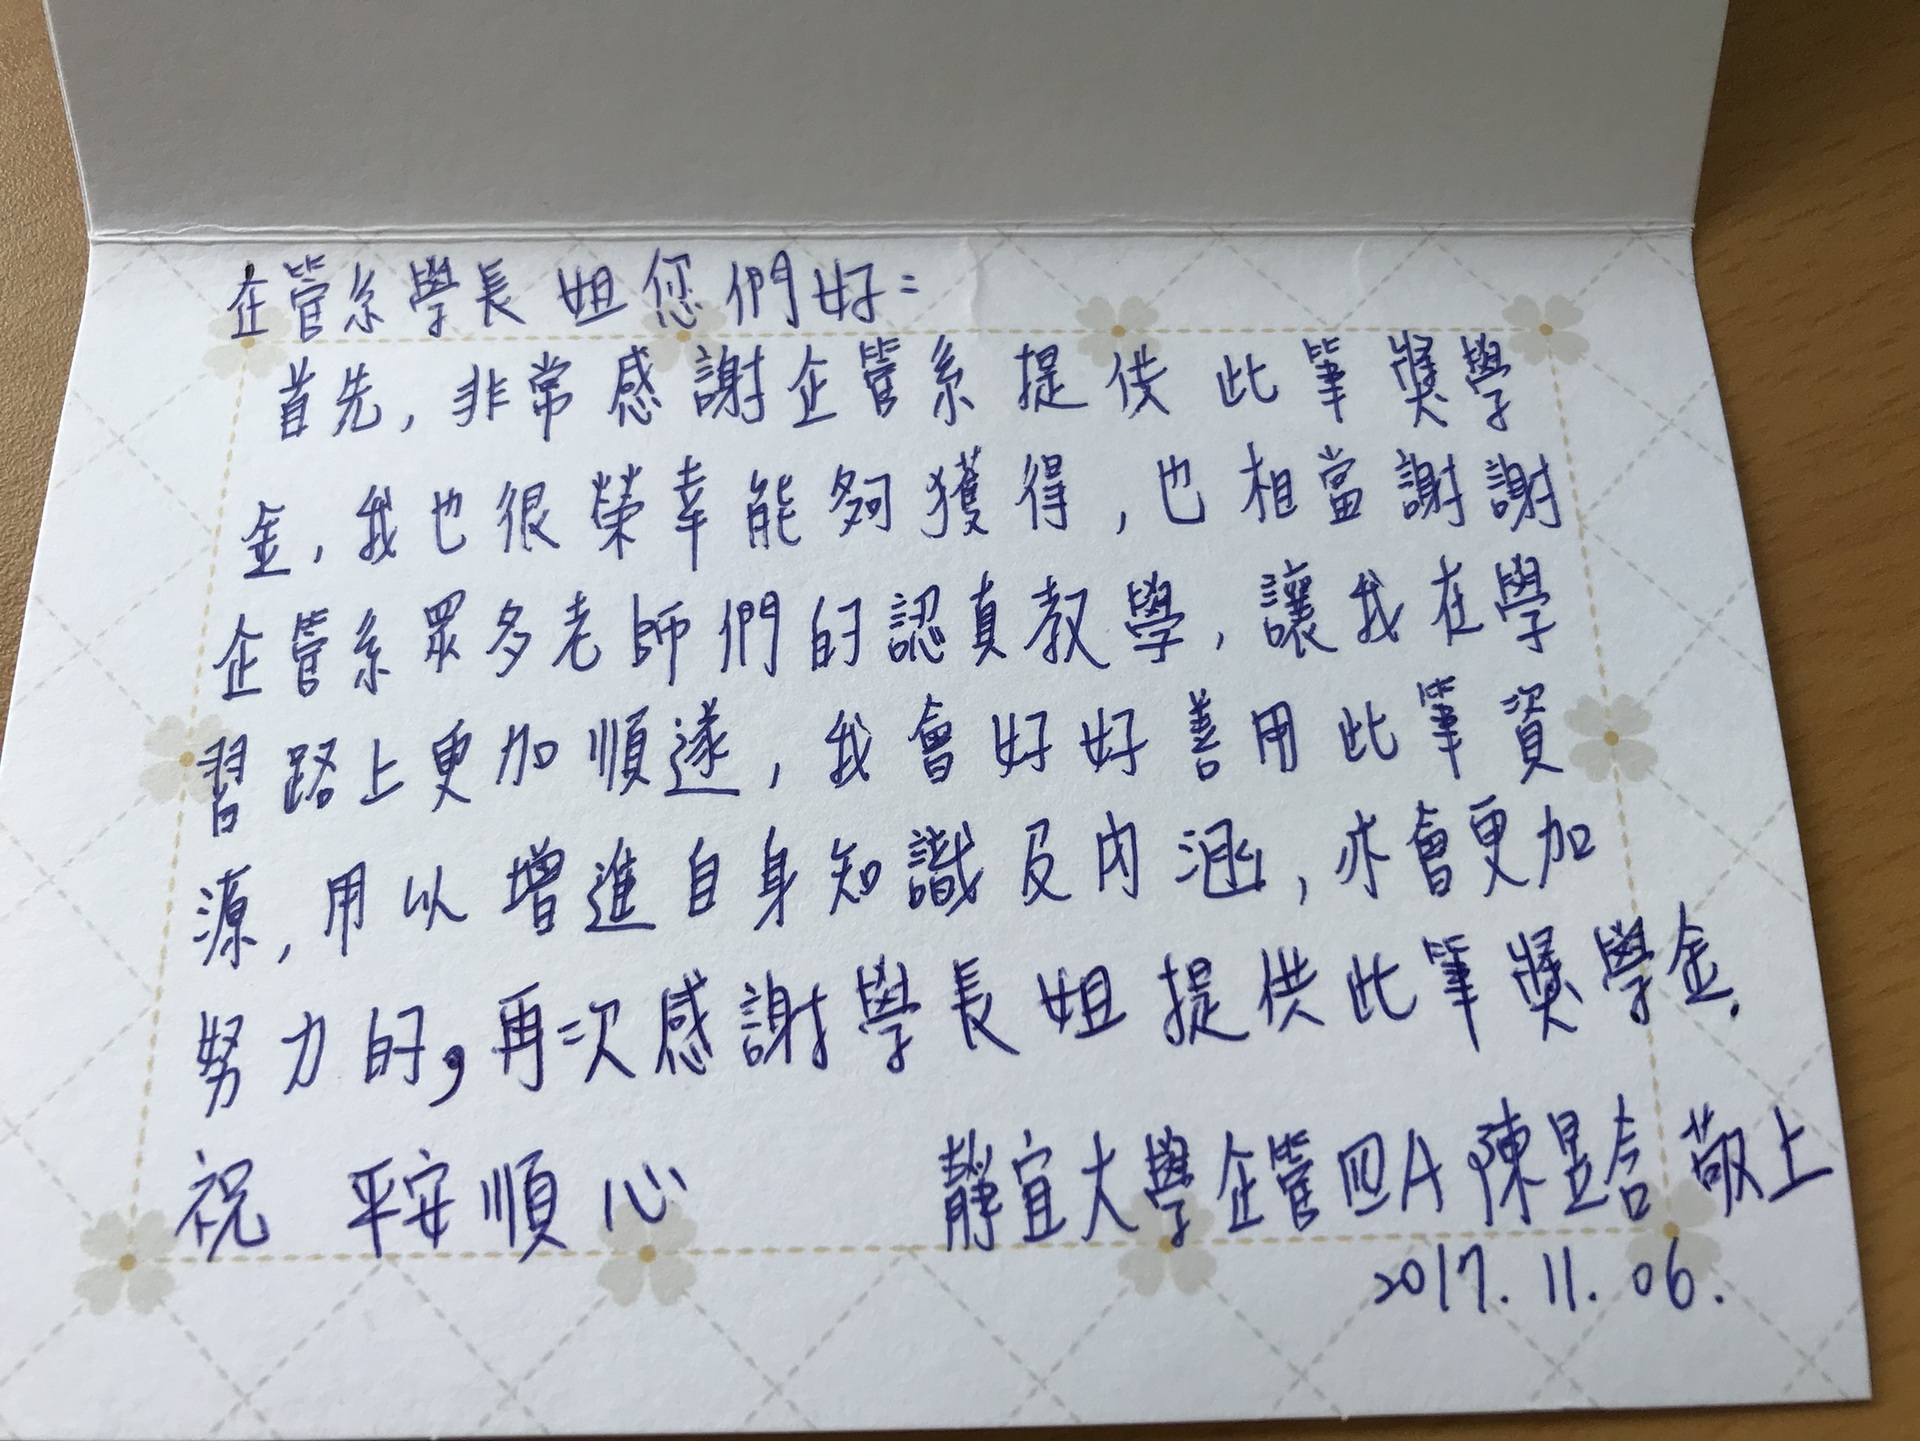 企管系學長姐您們好：
首先，非常感謝企管系提供此筆獎學
金，我也很榮幸能夠獲得，也相當謝謝
企管系眾多老師們的認真教學，讓我在學
習路上更加順遂，我會好好善用此筆資
源，用以增進自身知識及內涵，亦會更加
努力的，再次感謝學長姐提供此筆獎學金.
祝 平安順心 靜宜大學企管四A 陳昱含 敬上
2017.11.06.